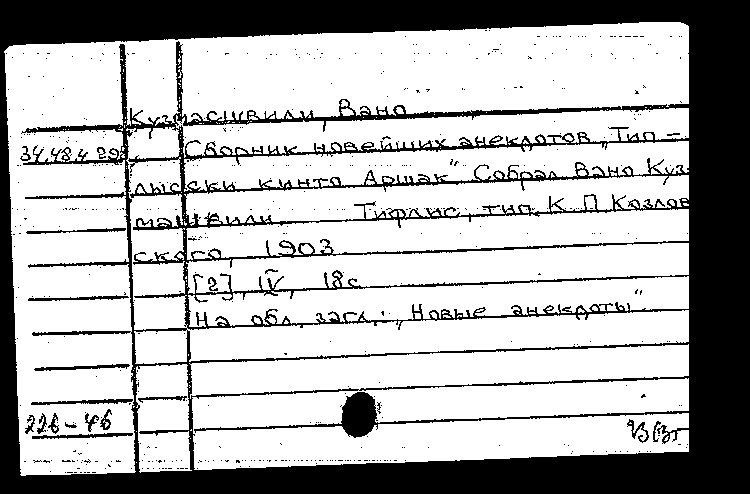 Кузмасшвили, Вано
34.48.4.298 Сборник новейших анекдотов „Тип=
лысски кинто Аршак" Собрал Вано Куз-
машвили. Тифлис, тип. К П Козлов
ского, 1903
[2], IV, 18с
На обл. загл.: „Новые анекдоты".
226-46